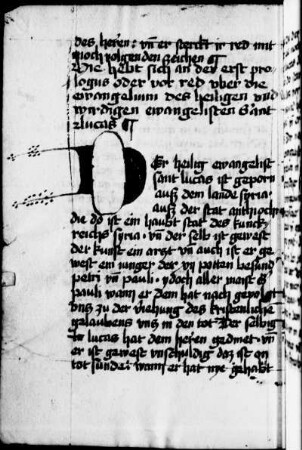 des heren : vn̄ er sterckt ir red mit
noch volgenden zeichen ¶
Hie hebt sich an der erst pro
logus oder vor red vber die
ewangelium des heiligen vnd
wirdigen ewangelisten Sant
Lucas ¶
Der heilig ewangelist
sant lucas ist geporn
auß dem lande syria
auß der stat anthyochia
die do ist ein haubt stat des kunck
reichs syria vn̄ der selb ist gewest
der kunst ein arzt vn̄ auch ist er ge
west ein iunger der xij potten besund
petri vn̄ pauli ydoch aller maist S
pauli wann er dem hat nach gevolgt
vntz zu der viehung des kristenliche
gelaubens vntz in den tot Der selbig
lucas hat dem heren gedinet vn̄
er ist gewest vnschuldig daz ist on
tot sunde wann er hat nye gehabt